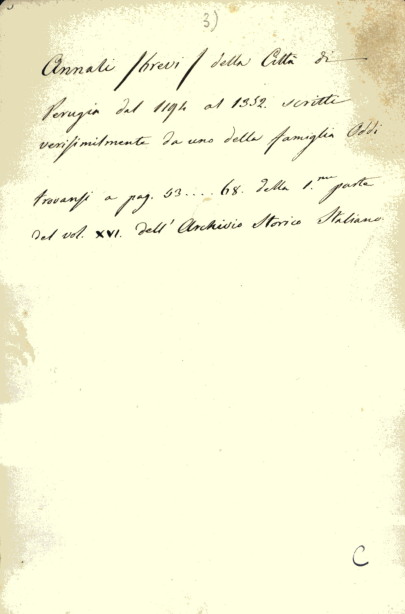 3)
Annali /brevi/ della Città di
Perugia dal 1194 al 1352 scritti
verisimilmente da uno della famiglia Oddi
trovansi a pag. 53....68. della 1.ma parte
del vol. XVI. dell'Archivio Storico Italiano.
C